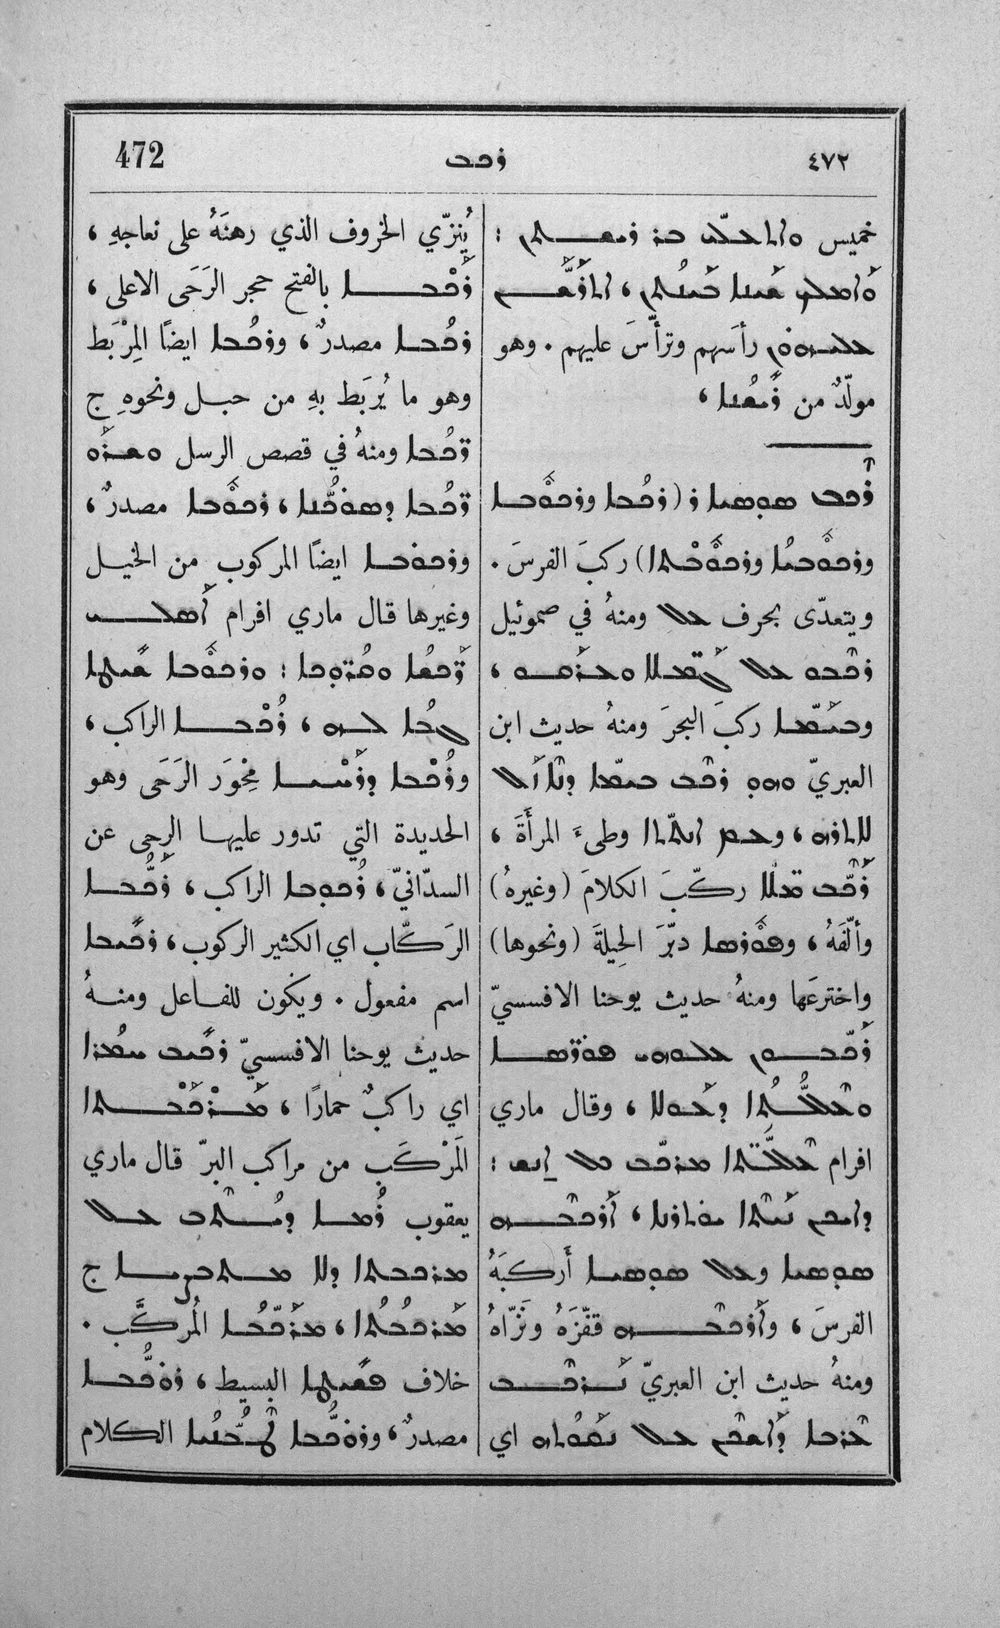 472
ܪܟܒ
٤٧٢
خميس ܘܐܬܥܠܝ ܒܪ ܪܝܫܝܬܢ :
ܘܐܡܠܟ ܩܝܢܐ ܒܝܢܬܢ ، ܐܬܪܝܫ
ܥܠܝܗܘܢ رأسَهم وترأّسَ عليهم . وهو
مولّدٌ من ܪܝܫܢܐ ،
ܪܟܒ ܣܘܣܝܐ ܪ (ܪܟܒܐ ܘܪܟܘܒܐ
ܘܪܟܘܒܝܐ ܘܪܟܘܒܬܐ) ركبَ الفرسَ .
ويتعدّى بحرف ܥܠ ومنهُ في صموئيل
ܪܟܒܘ ܥܠ ܓܡܠܐ ܘܥܪܩܘ ،
ܘܒܝܡܐ ركبَ البحرَ ومنهُ حديث ابن
العبريّ ܘܗܘ ܪܟܒ ܒܝܡܐ ܕܢܐܙܠ
ܠܐܬܪܗ ، ܘܥܡ ܐܢܬܬܐ وطىءَ المرأَةَ ،
ܪܟܒ ܡܠܐ ركّبَ الكلامَ (وغيرهُ)
وألّفَهُ ، ܘܦܘܪܣܐ دبّرَ الحِيلةَ (ونحوها)
واخترعَها ومنهُ حديث يوحنا الافسسيّ
ܪܟܒܘܢ ܥܠܘܗܝ ܦܘܪܣܐ
ܘܥܠܬܐ ܕܥܘܠܐ ، وقال ماري
افرام ܥܠܬܐ ܡܪܟܒ ܥܠ ܐܢܫ :
ܕܐܝܟܢ ܢܚܬܐ ܝܬܗ ، ܐܪܟܒܗ
ܣܘܣܝܐ ܘܥܠ ܣܘܣܝܐ أَركبَهُ
الفرسَ ، ܘܐܪܟܒܗ قفّزَهُ ونَزّاهُ
ومنهُ حديث ابن العبريّ ܢܪܟܒ
ܥܪܒܐ ܕܐܡܟܢ ܥܠ ܢܩܘܬܗ اي
يُنزّي الخروف الذي رهنَهُ على نعاجهِ ،
ܪܟܒܐ بالفتح حجر الرَحَى الاعلى ،
ܪܟܒܐ مصدرٌ ، ܘܪܟܒܐ ايضًا المِرْبَط
وهو ما يُربَط بهِ من حبل ونحوهِ ج
ܪܟܒܐ ومنهُ في قصص الرسل ܘܫܪܘ
ܪܟܒܐ ܕܣܘܟܢܐ ، ܪܟܘܒܐ مصدرٌ ،
ܘܪܟܘܒܐ ايضًا المركوب من الخيل
وغيرها قال ماري افرام ܐܣܠܝ
ܪܟܫܐ ܘܣܘܪܟܒܐ : ܘܪܟܘܒܐ ܩܢܝܛܐ
ܓܒܐ ܠܗ ، ܪܟܒܐ الراكب ،
ܘܪܟܒܐ ܕܪܚܝܐ مِحْوَر الرَحَى وهو
الحديدة التي تدور عليها الرحى عن
السدّانيّ ، ܪܟܘܒܐ الراكب ، ܪܟܒܐ
الرَكّاب اي الكثير الركوب ، ܪܟܝܒܐ
اسم مفعول . ويكون للفاعل ومنهُ
حديث يوحنا الافسسيّ ܪܟܝܒ ܚܡܪܐ
اي راكبٌ حمارًا ، ܡܪܟܒܬܐ
المَرْكَب من مراكب البرّ قال ماري
يعقوب ܪܡܐ ܕܚܬܬ ܥܠ
ܡܪܟܒܬܐ ܕܠܐ ܡܬܒܨܝܐ ج
ܡܪܟܒܬܐ ، ܡܪܟܒܐ المُركَّب .
خلاف ܦܫܝܛܐ البسيط ، ܪܘܟܒܐ
مصدرٌ ، ܘܪܘܟܒܐ ܛܝܒܢܐ الكلام